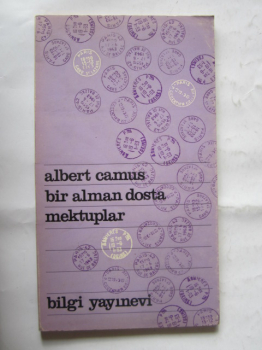 albert camus
bir alman dosta
mektuplar
bilgi yayınevi